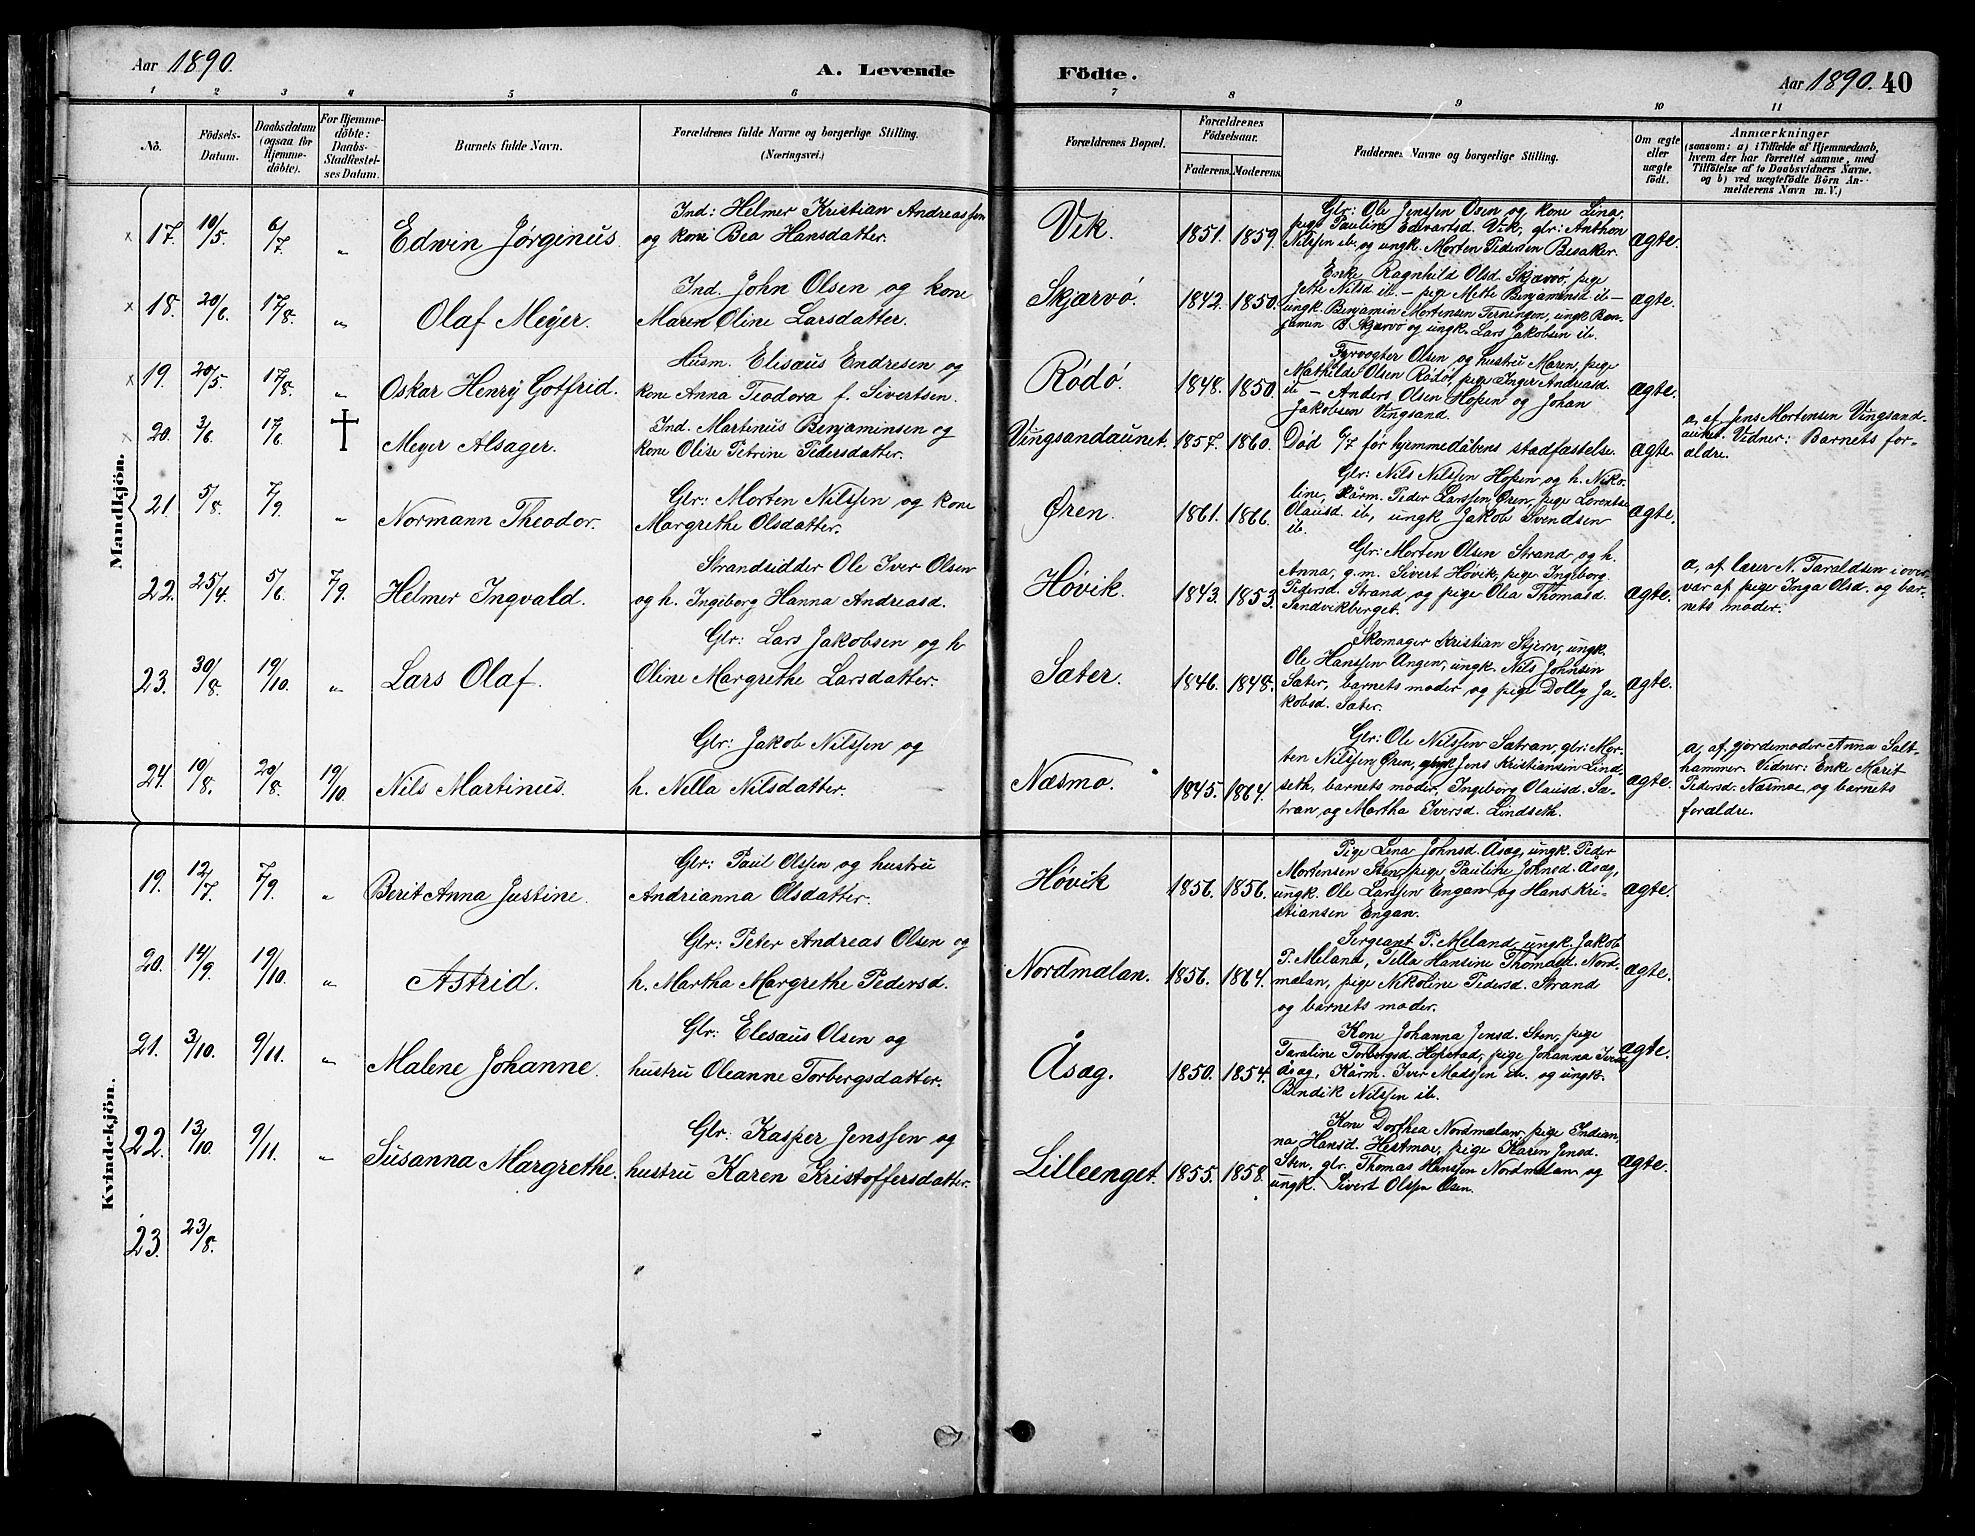 Aar 1890.
A. Levende
Födte.
Aar 1890. 40
1 2 3 4 5 6 7 8 9 10 11
No.
Födsels-
Datum.
Daabsdatum
(ogsaa for
Hjemme-
döbte).
For Hjemme-
döbte:
Daabs-
Stadfæstel-
ses Datum.
Barnets fulde Navn.
Forældrenes fulde Navne og borgerlige Stilling.
(Næringsvei.)
Forældrenes Bopæl.
Forældrenes
Födselsaar.
Faderens. Moderens.
Faddernes Navne og borgerlige Stilling.
Om ægte
eller
uægte
födt.
Anmærkninger
(saasom: a) i Tilfælde af Hjemmedaab,
hvem der har forrettet samme, med
Tilföielse af to Daabsvidners Navne.
og b) ved uægtefödte Börn An-
melderens Navn m. V.)
Mandkjön.
× 17. 10/5. 6/7. „ Edwin Jørginus.
Ind: Helmer Kristian Andreassen
og kone Bea Hansdatter.
Vik. 1851. 1859.
Glr: Ole Jenssen Osen og kone Lina,
pige Pauline Edvartsd. Vik, glr: Anthon
Nilssen ib. og ungk. Morten Pedersen Besaker.
ægte.
× 18. 20/6. 17/8. „ Olaf Meyer.
Ind. John Olsen og kone
Maren Oline Larsdatter.
Skjærvø. 1842. 1850.
Enke Ragnhild Olsd. Skjærvø, pige
Jette Nilsd ib. – pige Mette Benjaminsd ib –
ungk. Benjamin Mortensen Terningen, ungk Ben-
jamin B. Skjærvø og ungk. Lars Jakobsen ib.
ægte.
× 19. 20/5. 17/8. „ Oskar Henry Gotfrid.
Husm. Elisæus Endresen og
kone Anna Teodora f. Sivertsen.
Rødø. 1848. 1850.
Fyrvogter Olsen og hustru Maren, pige
Mathilde Olsen Rødø, pige Inger Andreasd.
ib – Anders Olsen Hopen og Johan
Jakobsen Vingsand.
ægte.
× 20. 3/6. 17/6 † Meyer Alsager.
Ind. Martinus Benjaminsen og
kone Olise Petrine Pedersdatter.
Vingsandaunet. 1857. 1860.
Død 6/7 før hjemmedåbens stadfæstelse.
ægte.
a, af Jens Mortensen Vingsand-
aunet. Vidner: Barnets for-
ældre.
21. 5/8. 7/9. „ Normann Theodor.
Glr: Morten Nilssen og kone
Margrethe Olsdatter.
Øren. 1861. 1866.
Glr: Nils Nilssen Hopen og h. Niko-
line, kårm. Peder Larssen Øren, pige Lorentse
Olausd. ib, ungk Jakob Svendsen
ib.
ægte.
22. 25/4. 5/6. 7/9. Helmer Ingvald.
Strandsidder Ole Iver Olsen
og h. Ingeborg Hanna Andreasd.
Høvik. 1843. 1853.
Glr: Morten Olsen Strand og h.
Anna, g.m. Sivert Høvik, pige Ingeborg
Pedersd. Strand og pige Olea Thomasd.
Sandvikberget.
ægte.
a, af lærer N. Taraldsen i over-
vær af pige Inga Olsd. og bar-
nets moder.
23. 30/8. 19/10. „ Lars Olaf.
Glr: Lars Jakobsen og h
Oline Margrethe Larsdatter.
Sæter. 1846. 1848.
Skomager Kristian Stjern, ungk.
Ole Hanssen Angen, ungk. Nils Johnsen
Sæter, barnets moder og pige Dolly Ja-
kobsd. Sæter.
ægte.
24. 19/8. 20/8. 19/10. Nils Martinus.
Glr: Jakob Nilssen og
h. Nella Nilsdatter.
Næsmo. 1845. 1864.
Glr: Ole Nilssen Sætran, glr: Mor-
ten Nilssen Øren, Jens Kristiansen Lind-
seth, barnets moder, Ingeborg Olausd. Sæ-
tran og Martha Iversd. Lindseth.
ægte.
a, af gjordemoder Anna Salt-
hammer. Vidner: Enke Marit
Pedersd. Næsmoe, og barnets
forældre.
Kvindekjön.
19. 12/7. 7/9. „ Berit Anna Justine.
Glr: Paul Olssen og hustru
Andrianna Olsdatter.
Høvik 1856. 1856.
Pige Lena Johnsd. Åsæg, ungk. Peder
Mortensen Sten, pige Pauline Johnsd. Åsæg,
ungk. Ole Larssen Engan og Hans Kri-
stiansen Engan.
ægte.
20. 14/9. 19/10. „ Astrid.
Glr: Peter Andreas Olsen og
h. Martha Margrethe Pedersd.
Nordmælan. 1856. 1864.
Sergeant P. Meland, ungk. Jakob
P. Meland, Pella Hansine Thomasd. Nord-
mælan, pige Nikoline Pedersd. Strand
og barnets moder.
ægte.
21. 3/10. 9/11. „ Malene Johanne.
Glr: Elesæus Olsen og
hustru Oleanne Torbergsdatter.
Åsæg. 1850. 1854.
Kone Johanna Jensd. Sten, pige
Taraline Torbergsd. Hopstad, pige Johanna Iversd
åsæg, Kårm. Iver Madssen ib. og ungk.
Bendik Nilssen ib.
ægte.
22. 13/10. 9/11. „ Susanna Margrethe.
Glr: Kasper Jenssen og
hustru Karen Kristoffersdatter.
Lilleenget. 1855. 1858.
Kone Dorthea Nordmælan, pige Indian-
na Hansd. Hestmoe, pige Karen Jensd.
Sten, glr. Thomas Hanssen Nordmælan og
ungk. Sivert Olssen Osen.
ægte.
23. 23/8.